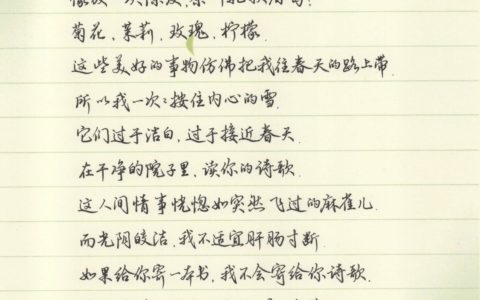 菊花，茉莉，玫瑰，柠檬.
这些美好的事物仿佛把我往春天的路上带.
所以我一次:按住内心的雪.
它们过于洁白，过于接近春天.
在干净的院子里，读你的诗歌.
这人间情事恍惚如突然飞过的麻雀儿.
而光阴皎洁.我不适宜肝肠寸断.
如果给你寄一本书，我不会寄给你诗歌.